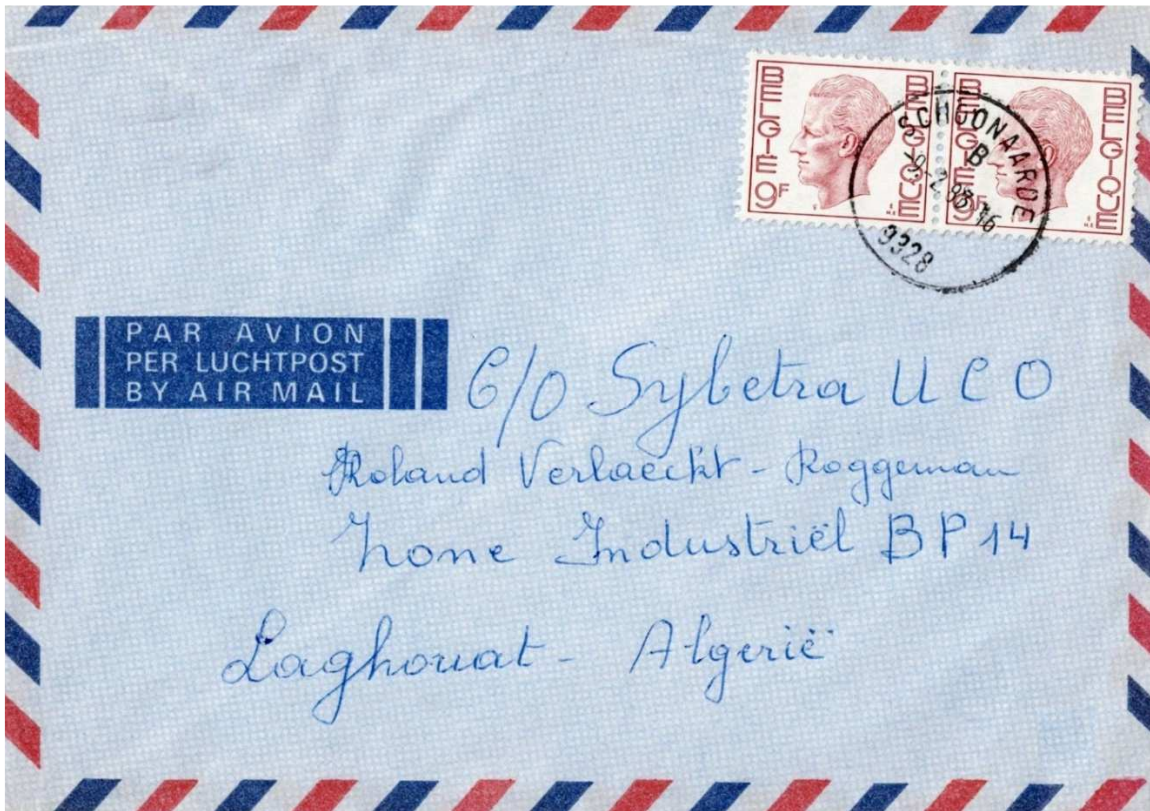 BELGIE 9F BELGIQUE
BELGIE 9F BELGIQUE
SCHOONAARDE
B
9328
PAR AVION
PER LUCHTPOST
BY AIR MAIL
C/O Sybetra U C O
Roland Verlaeckt - Roggeman
Zone Industriël BP 14
Laghouat - Algerië